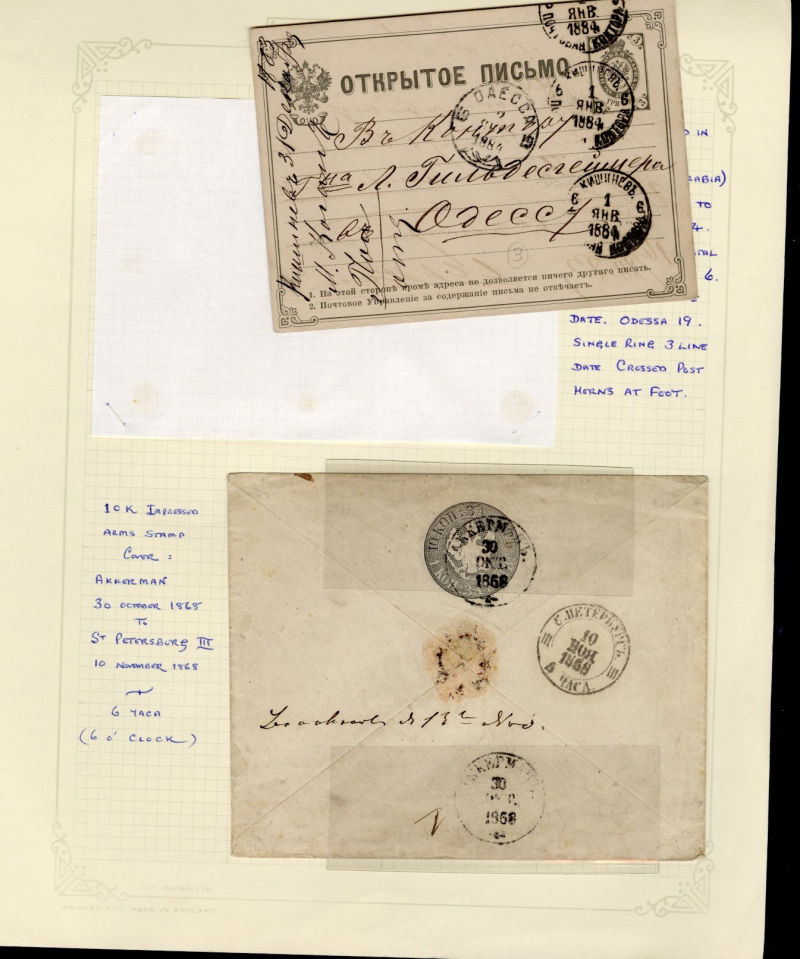 1
ЯНВ.
1884
ПОЧТОВАЯ КОНТОРА
ОТКРЫТОЕ ПИСЬМО
КИШИНЕВЪ
6 1 6
ЯНВ
1884
КОНТОРА
ОДЕССА
1884
Въ Контору
Г-на Л. Гильдесгеймера
въ Одессу
КИШИНЕВЪ.
6 1 6
ЯНВ
1884
КОНТОРА
Кишиневъ 31 Декабря 1883
М.
3
1. На этой сторонѣ кромѣ адреса не дозволяется ничего другаго писать.
2. Почтовое Управленіе за содержаніе письма не отвѣчаетъ.
IN
RABIA)
TO
4.
TAL
6.
DATE. ODESSA 19.
SINGLE RING 3 LINE
DATE CROSSED POST
HORNS AT FOOT.
10K IMPRESSED
ARMS STAMP
COVER :
AKKERMAN
30 OCTOBER 1868
TO
ST PETERSBURG III
10 NOVEMBER 1868
6 ЧАСА
(6 O' CLOCK)
10 КОП.
АККЕРМАНЪ.
30
ОКТ.
1868
С. ПЕТЕРБУРГЪ.
III 10 III
НОЯ
1868
ЧАСА.
13 Nov.
АККЕРМАНЪ
30
1868
PRINTED AND MADE IN ENGLAND